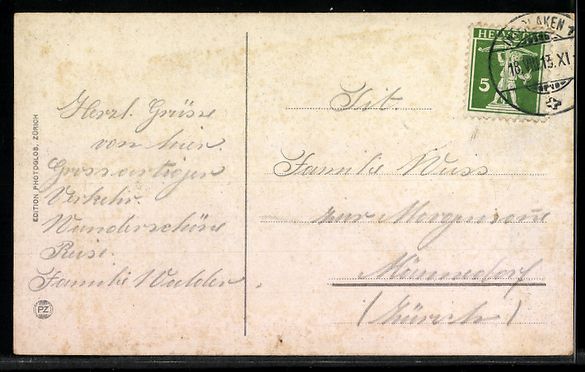 Herzl. Grüsse
von hier
Grossartiger
Verkehr.
Wunderschöne
Reise.
Familie Walder.
EDITION PHOTOGLOB, ZÜRICH
PZ
HELVETIA
5
LAKEN
13.XI
Tit.
Familie Weiss
zur Morgensonne
Männedorf
(Zürich)